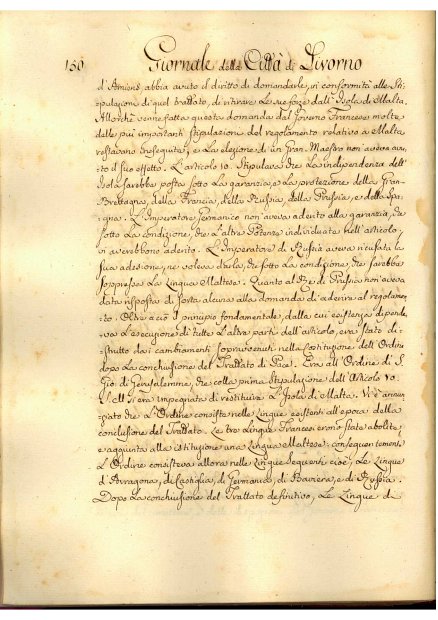 150 Giornale della Città di Livorno
d'Amiens abbia avuto il diritto di domandarle, in conformità alle Sti-
pulazioni di quel trattato, di ritirare le sue forze dall'Isola di Malta.
Allorchè venne fatta questa domanda dal Governo Francese molte
delle più importanti stipulazioni del regolamento relativo a Malta
restavano ineseguite; e la elezione di un Gran-Maestro non aveva avu-
to il suo effetto. L'articolo 10. Stipulava che la indipendenza dell'
Isola sarebbe posta sotto la garanzia, e la protezione della Gran-
Brettagna, della Francia, della Russia, della Prussia, e della Spa-
gna. L'Imperatore Germanico non aveva aderito alla garanzia, che
sotto la condizione che l'altre Potenze individuate nell'articolo,
vi averebbono aderito. L'Imperatore di Russia aveva ricusata la
sua adesione, ne voleva darla, che sotto la condizione, che sarebbe
soppressa la Lingua Maltese. Quanto al Rè di Prussia non aveva
data risposta di sorta alcuna alla domanda di aderire al regolamen-
to. Oltre a ciò il principio fondamentale, dalla cui esistenza dipende-
va l'esecuzione di tutte l'altre parti dell'articolo, era stato di-
strutto dai cambiamenti sopravvenuti nella Costituzione dell'Ordine
dopo la conchiusione del Trattato di Pace. Era all'Ordine di S.
Gio di Gerusalemme, che colla prima Stipulazione dell'Articolo 10.
S. M. si era impegnata di restituire l'Isola di Malta. Vi è annun-
ziato che l'Ordine consiste nelle Lingue esistenti all'epoca della
conclusione del Trattato. Le tre Lingue Francesi erono state abolite,
e aggiunta alla istituzione una Lingua Maltese: conseguentemente
l'Ordine consisteva allora nelle Lingue seguenti cioè, le Lingue
d'Arragona, di Castiglia, di Germania, di Baviera, e di Russia.
Dopo la conchiusione del Trattato definitivo, le Lingue di